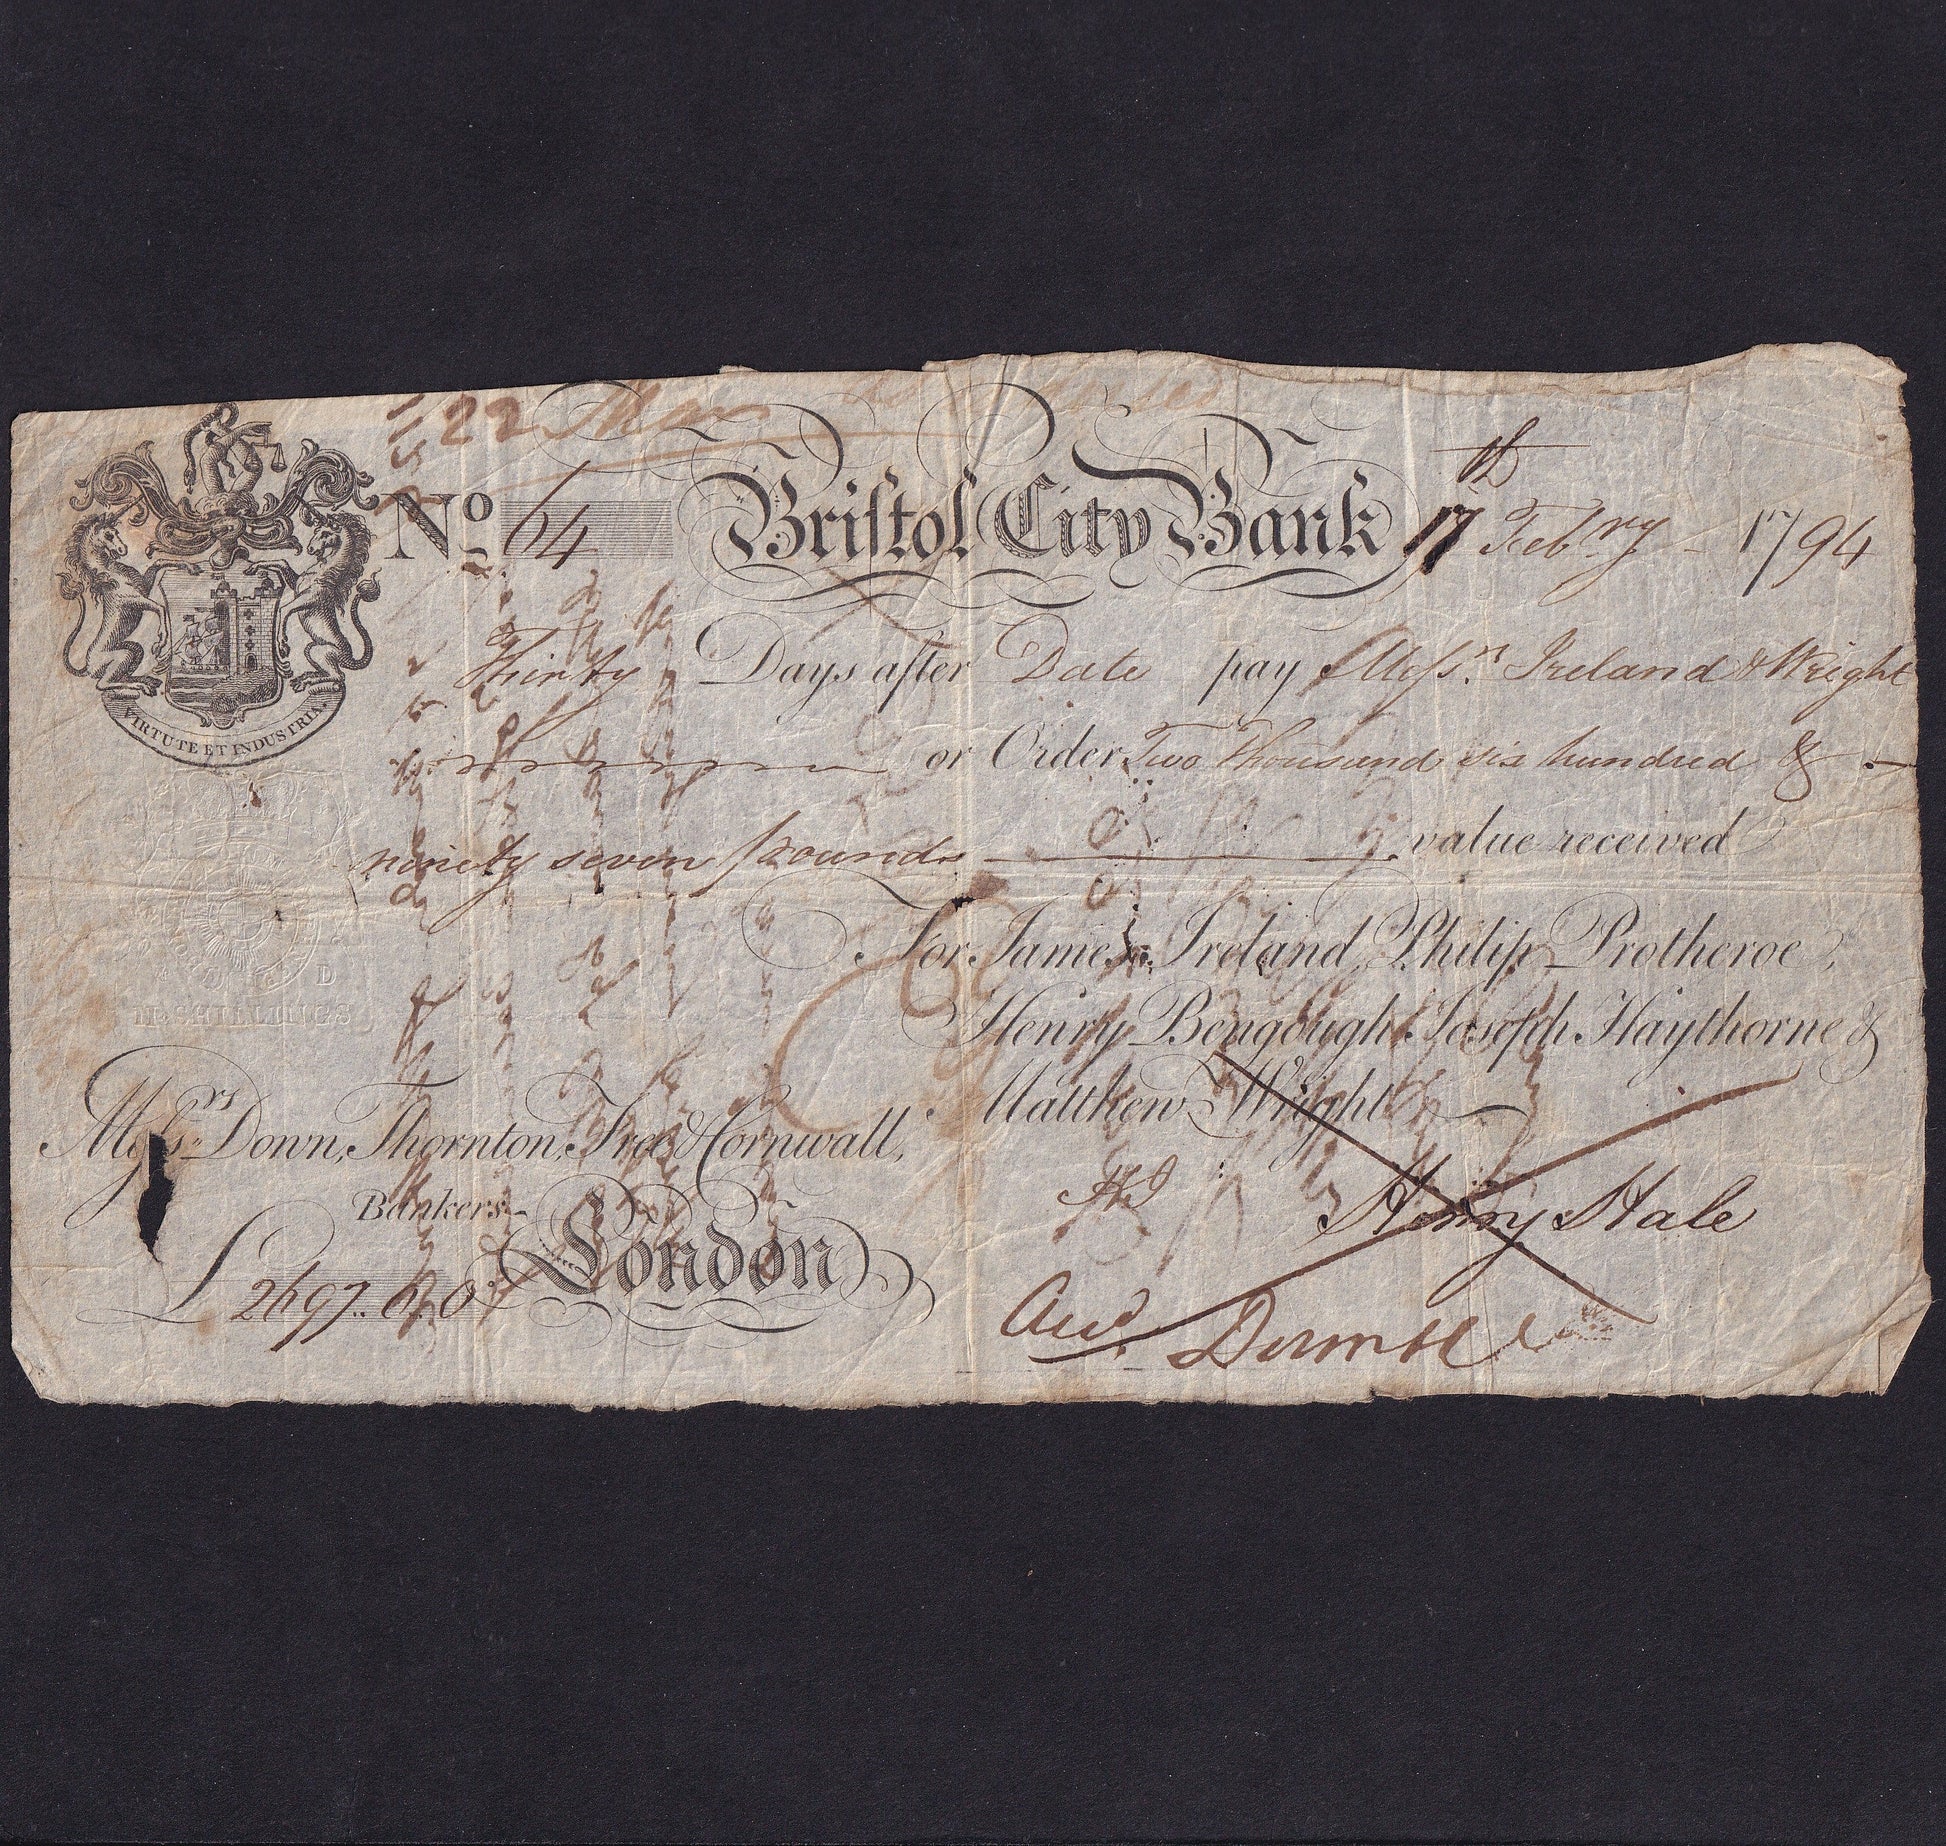 22
No 64 Bristol City Bank 17th Feb.ry 1794
Thirty Days after Date pay Mess.rs Ireland & Wright
or Order Two thousand six hundred &
ninety seven pounds value received
For James Ireland, Philip Protheroe,
Henry Bengough, Joseph Haythorne &
Matthew Wright
Mess.rs Down, Thornton, Free & Cornwall,
Bankers
London
£ 2697..0.0
Henry Hale
VIRTUTE ET INDUSTRIA
SHILLINGS